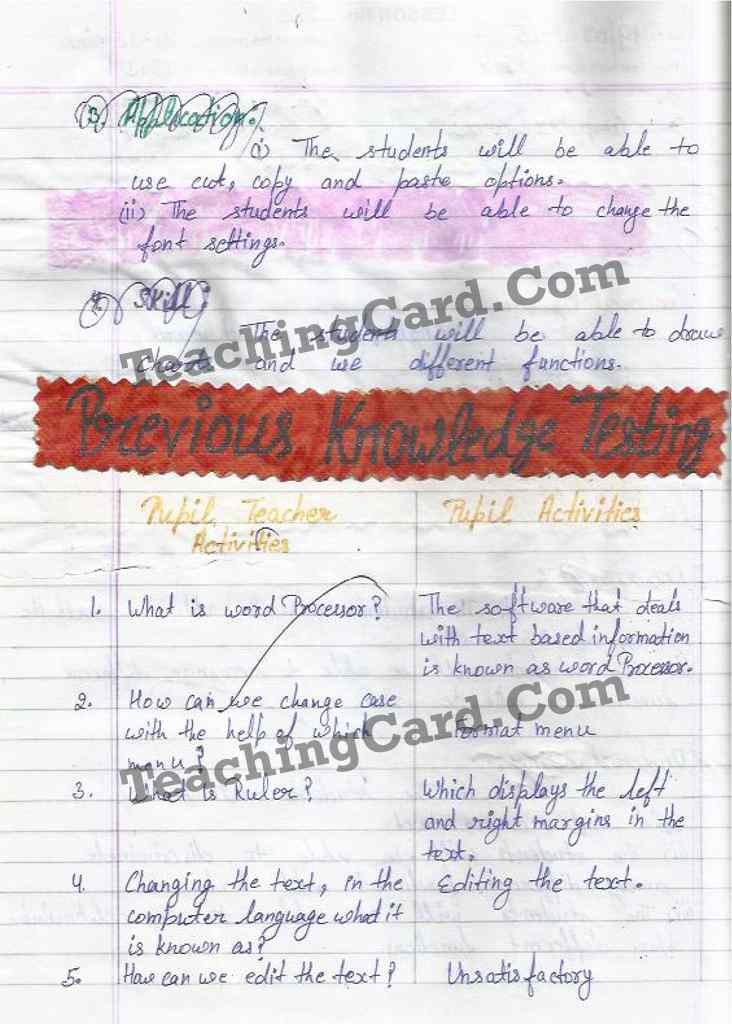 3. Application:
(i) The students will be able to
use cut, copy and paste options.
(ii) The students will be able to change the
font settings.
4. Skill:
The students will be able to draw
Charts and use different functions.
TeachingCard.Com
Previous Knowledge Testing
Pupil Teacher
Activities
Pupil Activities
1. What is word Processor?
The software that deals
with text based information
is known as word Processor.
2. How can we change case
with the help of which
menu?
Format menu
TeachingCard.Com
3. What is Ruler?
Which displays the left
and right margins in the
text.
4. Changing the text, in the
computer language what it
is known as?
Editing the text.
5. How can we edit the text?
Unsatisfactory